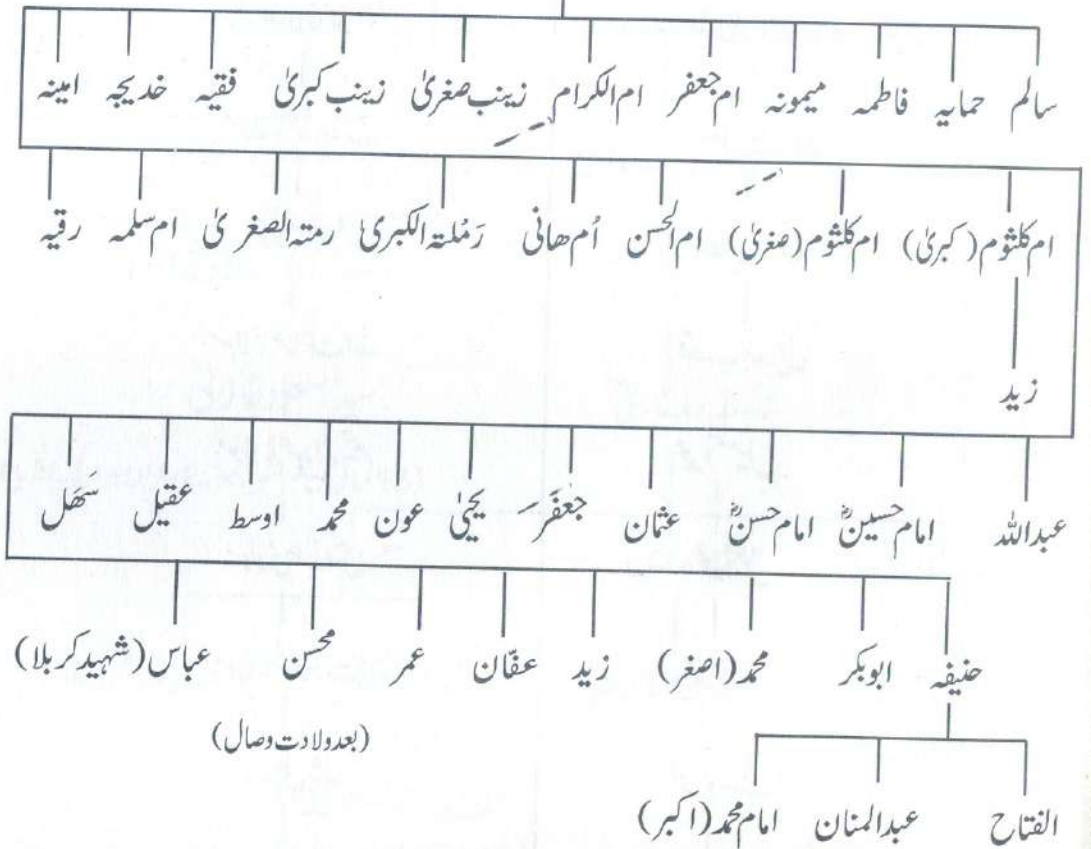 سالم حمایہ فاطمہ میمونہ ام جعفر ام الکرام زینب صغریٰ زینب کبریٰ فقیہ خدیجہ امینہ
ام کلثوم (کبریٰ) ام کلثوم (صغریٰ) ام الحسن اُم ھانی رَمُلتہ الکبریٰ رمتہ الصغریٰ ام سلمہ رقیہ
زید
عبداللہ امام حسینؓ امام حسنؓ عثمان جعفر یحییٰ عون محمد اوسط عقیل سھل
حنیفہ ابوبکر محمد (اصغر) زید عفّان عمر محسن عباس (شہید کربلا)
(بعد ولادت وصال)
الفتاح عبدالمنان امام محمد (اکبر)